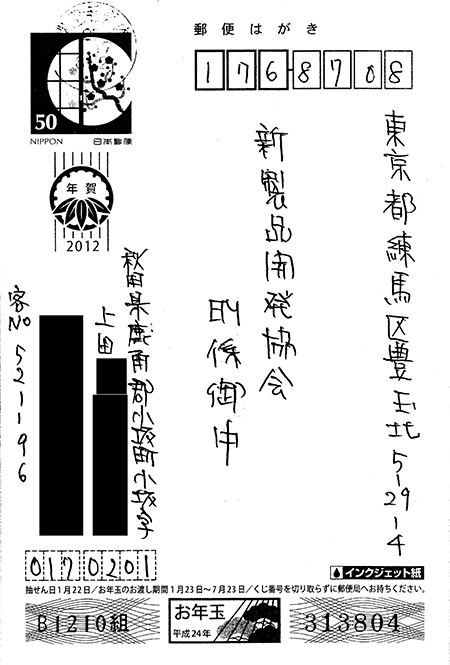 郵便はがき
176-8708
50
NIPPON 日本郵便
年賀
2012
東京都練馬区豊玉北5-29-4
新製品開発協会
係御中
秋田県鹿角郡小坂町小坂字
上田
客No 52-1196
0170201
インクジェット紙
抽せん日1月22日／お年玉のお渡し期間1月23日～7月23日／くじ番号を切り取らずに郵便局へお持ちください。
B1210組
お年玉
平成24年
313804